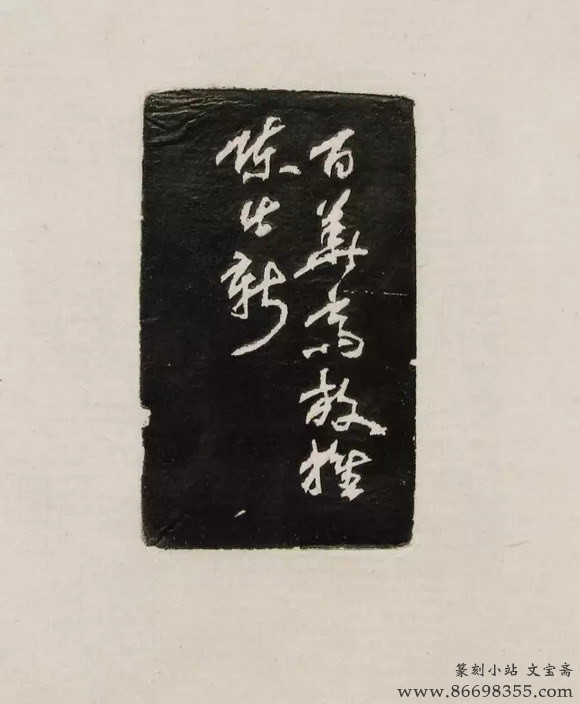 百華齊放推
陳出新
篆刻小站 文宝斋
www.86698355.com